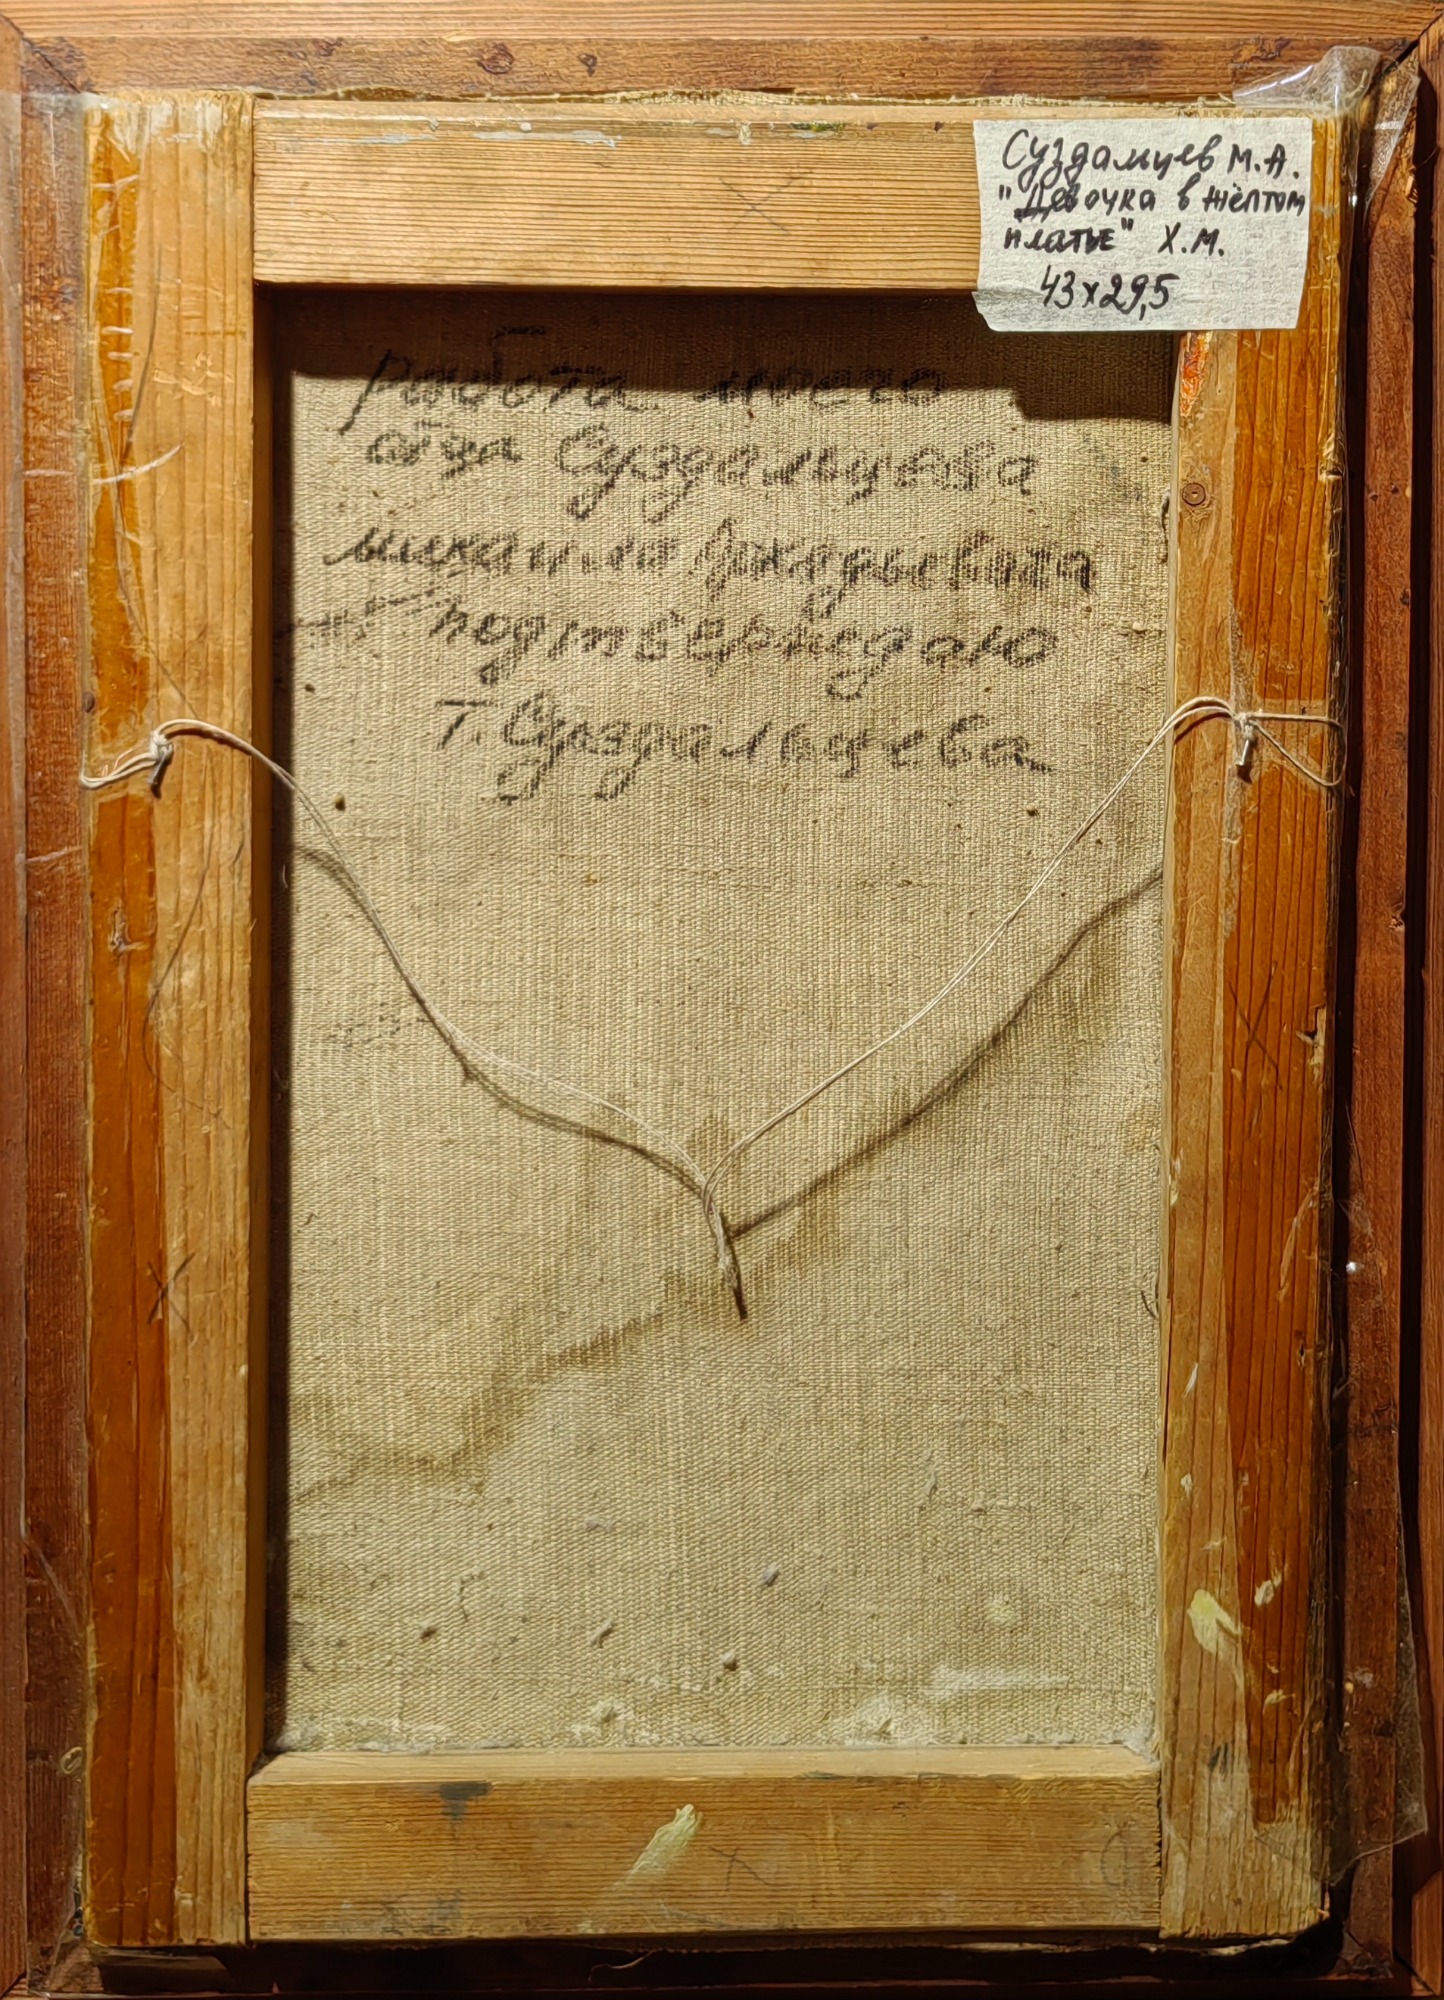 Суздальцев М.А.
"Девочка в жёлтом
платье" Х.М.
43х29,5
Работа моего
отца Суздальцева
Михаила Аркадьевича
подтверждаю
Т. Суздальцева